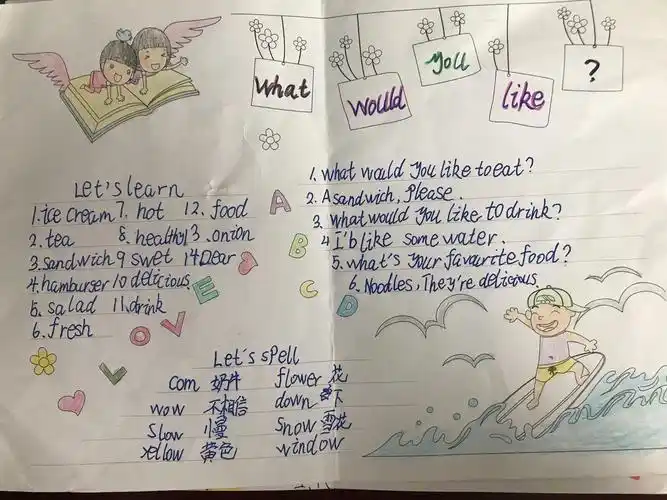 What would you like ?
Let's learn
1. ice cream 7. hot 12. food
2. tea 8. healthy 13. onion
3. sandwich 9 swet 14 Dear
4. hamburser 10 delicious
5. salad 11. drink
6. fresh
1. What would you like to eat?
2. A sandwich, please.
3. What would you like to drink?
4 I'b like some water.
5. what's your favourite food?
6. Noodles, They're delicious.
A
B
C
D
E
L
O
V
Let's spell
Com 奶牛 flower 花
wow 不相信 down 下
Slow 慢 snow 雪花
yellow 黄色 window